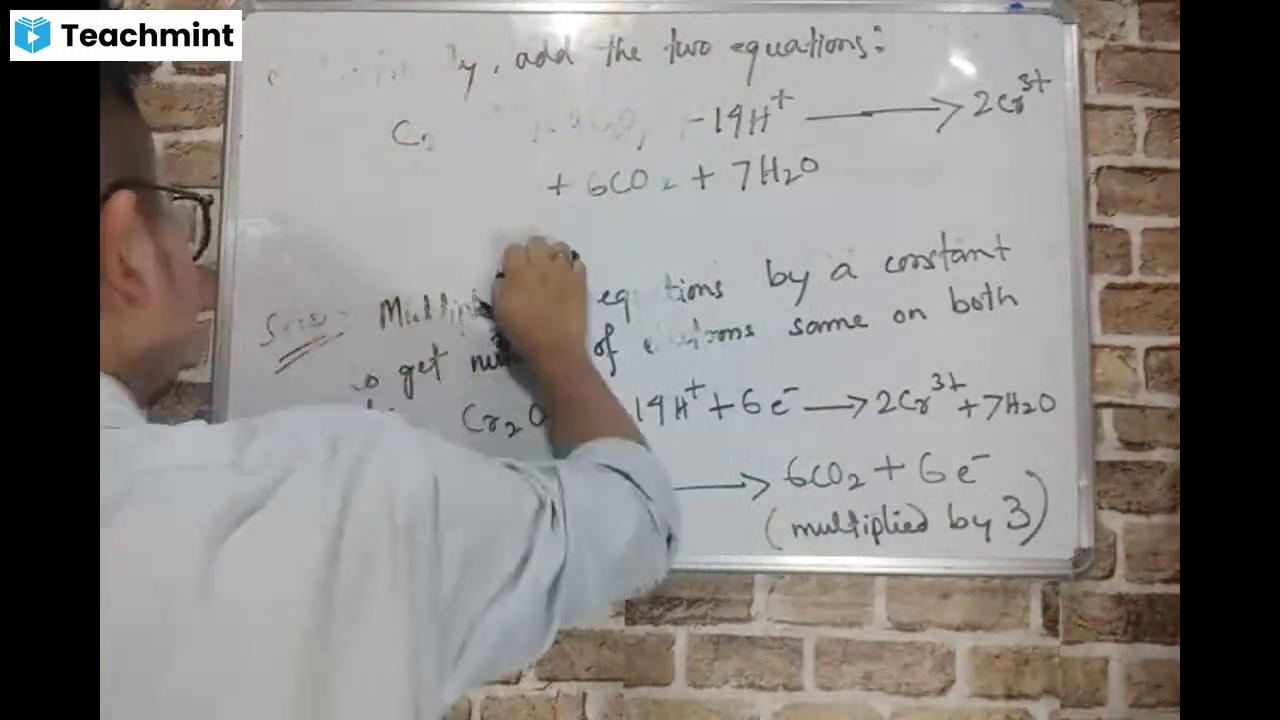 Teachmint
y, add the two equations:
Cr 14H⁺ ⟶ 2Cr³⁺
+ 6CO₂ + 7H₂O
Multip eq tions by a constant
get of same on both
Cr₂O 14H⁺ + 6e⁻ ⟶ 2Cr³⁺ + 7H₂O
⟶ 6CO₂ + 6e⁻
(multiplied by 3)